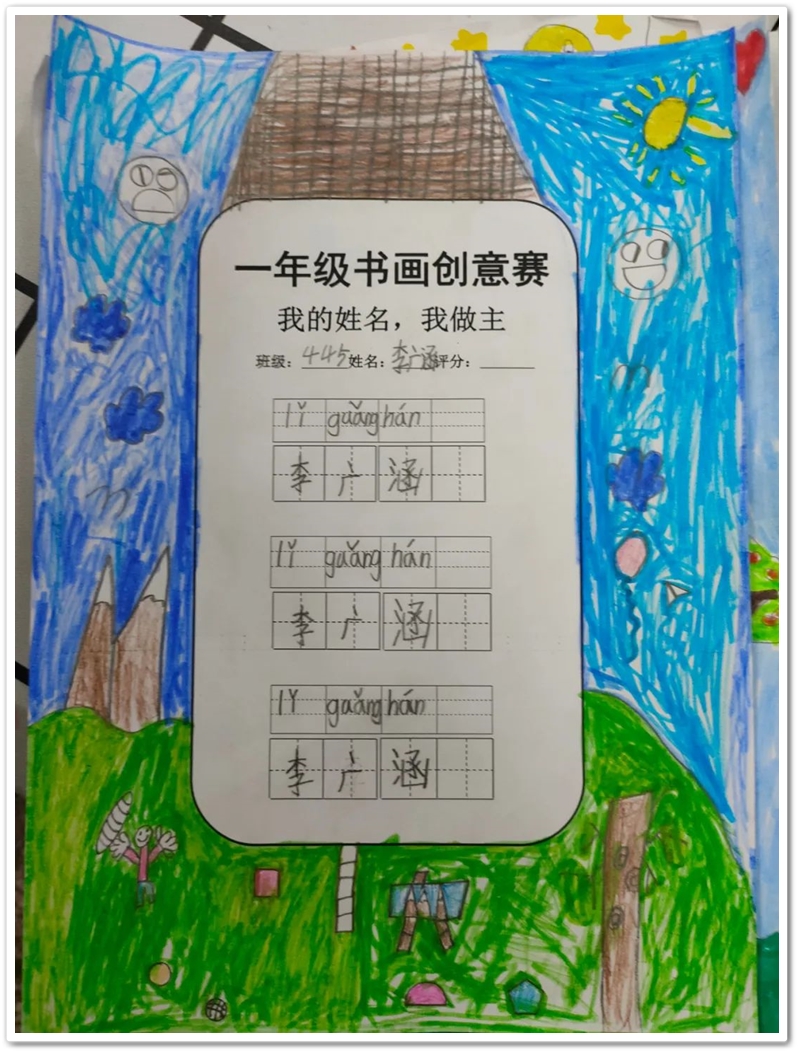 一年级书画创意赛
我的姓名，我做主
班级：445 姓名：李广涵 评分：
lǐ guǎng hán
李广涵
lǐ guǎng hán
李广涵
lǐ guǎng hán
李广涵